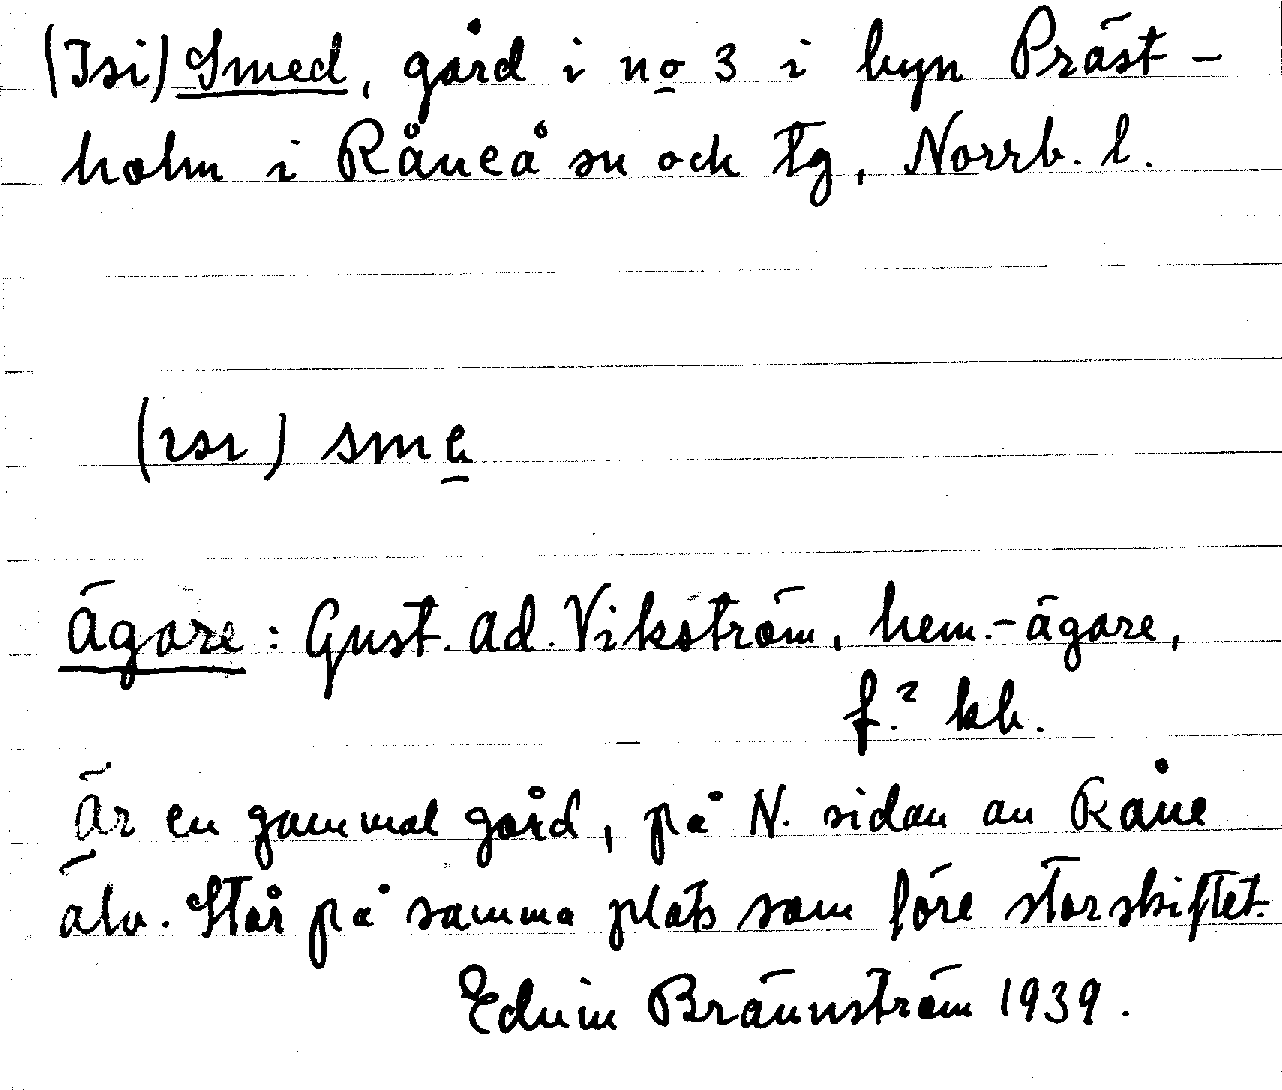 (Isi) Smed, gård i no 3 i byn Präst-
holm i Råneå sn och tg, Norrb. l.
(ısı) sme̱
Ägare: Gust. Ad. Vikström, hem.-ägare,
f.? kb.
Är en gammal gård, på N. sidan av Råne
älv. Står på samma plats som före storskiftet.
Edvin Brännström 1939.